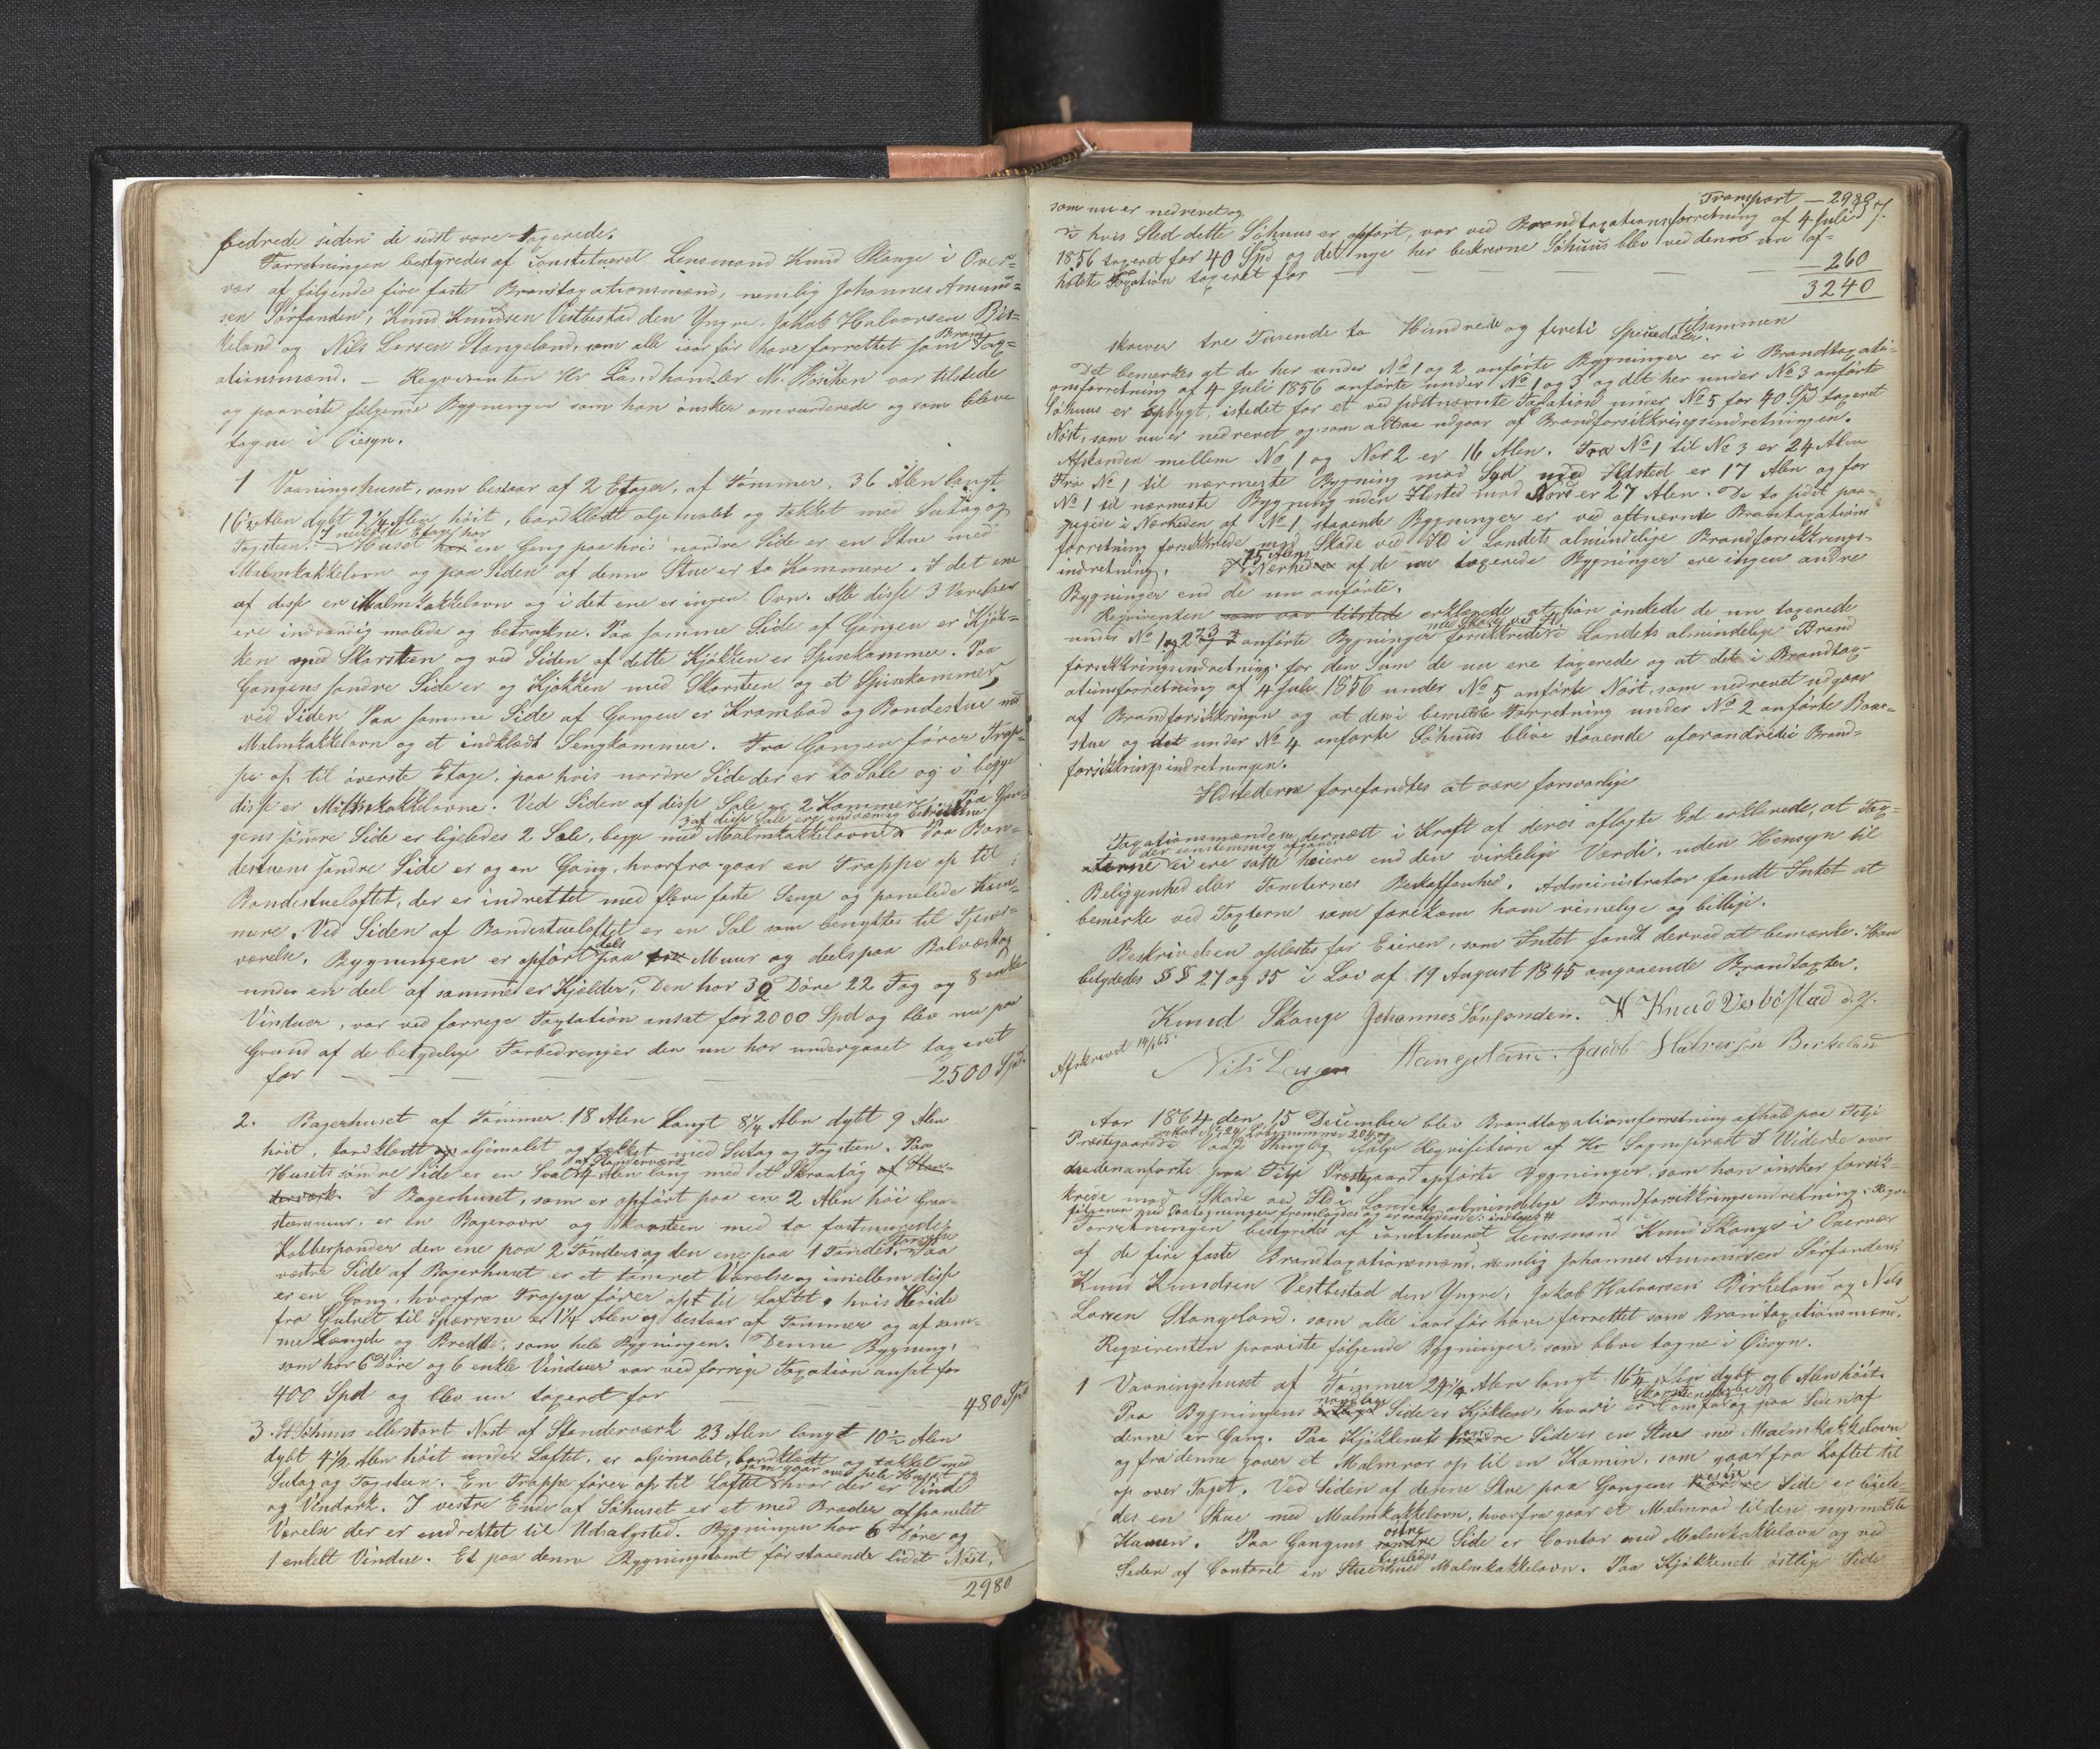 bedrede siden de sidst vare taxerede.
Forretningen bestyredes af constitueret Lensmand Knud Skauge i Over-
vær af følgende fire faste Brandtaxationsmænd, nemlig Johannes Amund-
sen Sørfonden, Knud Knudsen Vestbøstad den Yngre, Jakob Halvorsen Bir-
keland og Nils Larsen Stangeland, som alle isør før have forrettet som Brand Tax-
ationsmænd. – Reqvirenten Hr Landhandler M. var tilstede
og paaviste følgende Bygninger som han ønsker omvurderede og som bleve
tagne i Øiesyn.
1 Vaaningshuset, som bestaar af 2 Etager, af Tømmer, 36 Alen langt
16½ Alen dybt 2¼ Alen høit, bordklædt oljemalet og tækket med Sutag og
Tagsteen. I nederste Etage har
Huset har en Gang paa hvis nordre Side er en Stue med
Malmkakkelovn og paa Siden af denne Stue er to Kammere. I det ene
af disse er Malmkakkelovn og i det ene er ingen Ovn. Alle disse 3 Værelser
ere indvendig malede og betrækne. Paa samme Side af Gangen er Kjøk-
ken med Skorsteen og ved Siden af dette Kjøkken er Spisekammer. Paa
Gangens søndre Side er og Kjøkken med Skorsteen og et Spisekammer
ved Siden Paa samme Side af Gangen er Krambod og Bondestue med
Malmkakkelovn og et indklædt Sengkammer. Fra Gangen fører Trap-
pe op til øverste Etage, paa hvis nordre Side der er to Sale og i begge
disse er Malmkakkelovne. Ved Siden af disse Sale er 2 Kammere. Paa Gan-
3 af disse Sale ere indvendig betrukne
gens søndre Side er ligeledes 2 Sale, begge med Malmkakkelovne. Paa Bon-
destuens søndre Side er og en Gang, hvorfra gaar en Trappe op til
Bondestueloftet, der er indrettet med flere faste Senge og panelede Kam-
mere. Ved Siden af Bondestueloftet er en Sal som benyttes til Tjener-
værelse. Bygningen er opført dels paa Muur og deels paa Bulværk og
under en deel af samme er Kjælder. Den har 32 Døre 22 Fag og 8 enkle
Vinduer, var ved forrige Taxtation ansat for 2000 Spd og blev nu paa
Grund af de betydelige Forbedringer den nu har undergaaet taxeret
for – – – – 2500 Spd.
2. Bagerhuset af Tømmer 18 Alen langt 8¼ Alen dybt 9 Alen
høit, bordklædt og oljemalet og tækket med Sutag og Tagsteen. Paa
af Standerværk
Husets søndre Side er en Sval 14 Alen lang med et Skraatag af Stan-
derværk. I Bagerhuset, som er opført paa en 2 Alen høi Graa-
steensmuur, er en Bagerovn og Skorsteen med to fastmurede
Kobberpander den ene paa 2 Tønders og den ene paa 1 Tøndes. Paa
vestre Side af Bagerhuset er et tømret Værelse og imellem disse
er en Gang, hvorfra Trappe fører opt til Loftet, hvis Høide
fra Gulvet til Sperrerne er 1¼ Alen og bestaar af Tømmer og af sam-
me Længde og Bredde, som hele Bygningen. Denne Bygning,
som har 6 Døre og 6 enkle Vinduer var ved forrige Taxation ansat for
400 Spd og blev nu taxeret for – – 480 Spd
3. Et Søhuus eller stort Nøst af Standerværk 23 Alen langt 10½ Alen
dybt 4½ Alen høit under Loftet, er oljemalet, bordklædt og tækket med
Sutag og Tagsteen. En Trappe fører op til Loftet som gaar over hele Huset og hvor der er Vinde
og Vindark. I vestre Ende af Søhuset er et med Bræder afpanlet
Værelse der er indrettet til Udsalgsted. Bygningen har 6 Døre og
1 enkelt Vindue. Et paa denne Bygningstomt før staaende lidet Nøst,
2980
Transport – 2980
som nu er nedrevet og
i hvis Sted dette Søhuus er opført, var ved Brandtaxationsforretning af 4 Juli
1856 taxeret for 40 Spd og det nye her beskrevne Søhuus blev ved denne nu af-
holdte Taxation taxeret for – – – 260
3240
skriver tre Tusende to Hundrede og firti Speciedaler. tilsammen
Det bemerkes at de her under No 1 og 2 anførte Bygninger er i Brandtaxati-
onsforretning af 4 Juli 1856 anførte under No 1 og 3 og det her under No 3 anførte
Søhuus er opbygt, istedet for et ved sidstnævnte Taxation under No 5 for 40 Spd taxeret
Nøst, som nu er nedrevet og som altsaa udgaar af Brandforsikkringsindretningen.
Afstanden mellem No 1 og No 2 er 16 Alen. Fra No 1 til No 3 er 24 Alen
Fra No 1 til nærmeste Bygning mod Syd med Ildsted er 17 Alen og for
No 1 til nærmeste Bygning uden Ildsted mod Nord er 27 Alen. De to sidst paa-
pegede i Nærheden af No 1 staaende Bygninger er ved oftnævnte Brandtaxations
forretning forsikkrede mod Skade ved Ild i Landets almindelige Brandforsikkrings-
indretning. I 75 Alens Nærheden af de nu taxerede Bygninger ere ingen andre
Bygninger end de nu anførte.
Reqvirenten som var tilstede erklærede, at han ønskede de nu taxerede
under No 1 og 2 3 anførte Bygninger mod Skade ved Ild forsikkrede i Landets almindelige Brand
forsikkringsindretning for den Sum de nu ere taxerede og at det i Brandtax-
ationsforretning af 4 Juli 1856 under No 5 anførte Nøst, som nedrevet udgaar
af Brandforsikkringen og at den i bemeldte Forretning under No 2 anførte Baar-
stue og det under No 4 anførte Søhuus blive staaende uforandrede i Brand-
forsikkringsindretningen.
Ildstederne forefandtes at være forsvarlige
Taxationsmændene dernæst i Kraft af deres aflagte Ed erklærede, at Tax-
der eenstemmig afgaves
terne ei ere satte høiere end den virkelige Værdi, uden Hensyn til
Beliggenhed eller Tomternes Beskaffenhed. Administrator fandt Intet at
bemerke ved Taxterne som forekom ham rimelige og billige.
Beskrivelsen oplæstes for Eieren, som Intet fandt derved at bemærke. Han
betydedes §§ 27 og 35 i Lov af 19 August 1845 angaaende Brandtaxter.
Knud Skauge Johannes Sørfonden. K Knud Vesbøstad d.y.
Afskrevet 14/1 65.
Nils Larsen Stangeland. Jacob Halvorsen Birkeland
Aar 1864 den 15 December blev Brandtaxationsforretning afholdt paa Fitje
Prestegaard Matr No 24 Løbenummer 204 Thinglag ifølge Reqvisition af Hr Sogneprest J Widerøe over
nedenanførte paa Fitje Præstegaard opførte Bygninger, som han ønsker forsik-
krede mod Skade ved Ild i Landets almindelige Brandforsikkringsindretning. Reqvi-
sitionen med Paategninger fremlagdes og er saalydende: indtages #
Forretningen bestyredes af constitueret Lensmand Knud Skauge i Overvær
af de fire faste Brandtaxationsmænd, nemlig Johannes Amundsen Sørfonden,
Knud Knudsen Vestbøstad den Yngre, Jakob Halvorsen Birkeland og Nils
Larsen Stangeland, som alle isør før have forrettet som Brandtaxationsmænd.
Reqvirenten paaviste følgende Bygninger, som bleve tagne i Øiesyn.
1 Vaaningshuset af Tømmer 24¼ Alen langt 16¼ Alen dybt og 6 Alen høit.
Paa Bygningens nordlige Side er Kjøkken, hvori er Skorsteen og paa Siden af
denne er Gang. Paa Kjøkkenets søndre Side er en Stue med Malmkakkelovn
og fra denne gaaer et Malmrør op til en Kamin, som gaar fra Loftet til
op over Taget. Ved Siden af denne Stue paa Gangens vestre Side er ligele-
des en Stue med Malmkakkelovn, hvorfra gaar et Malmrør til den nysmeldte
Kamin. Paa Gangens østre Side er Contor med Malmkakkelovn og ved
Siden af Contoret en Stue ligeledes med Malmkakkelovn. Paa Kjøkkenets østlige Side